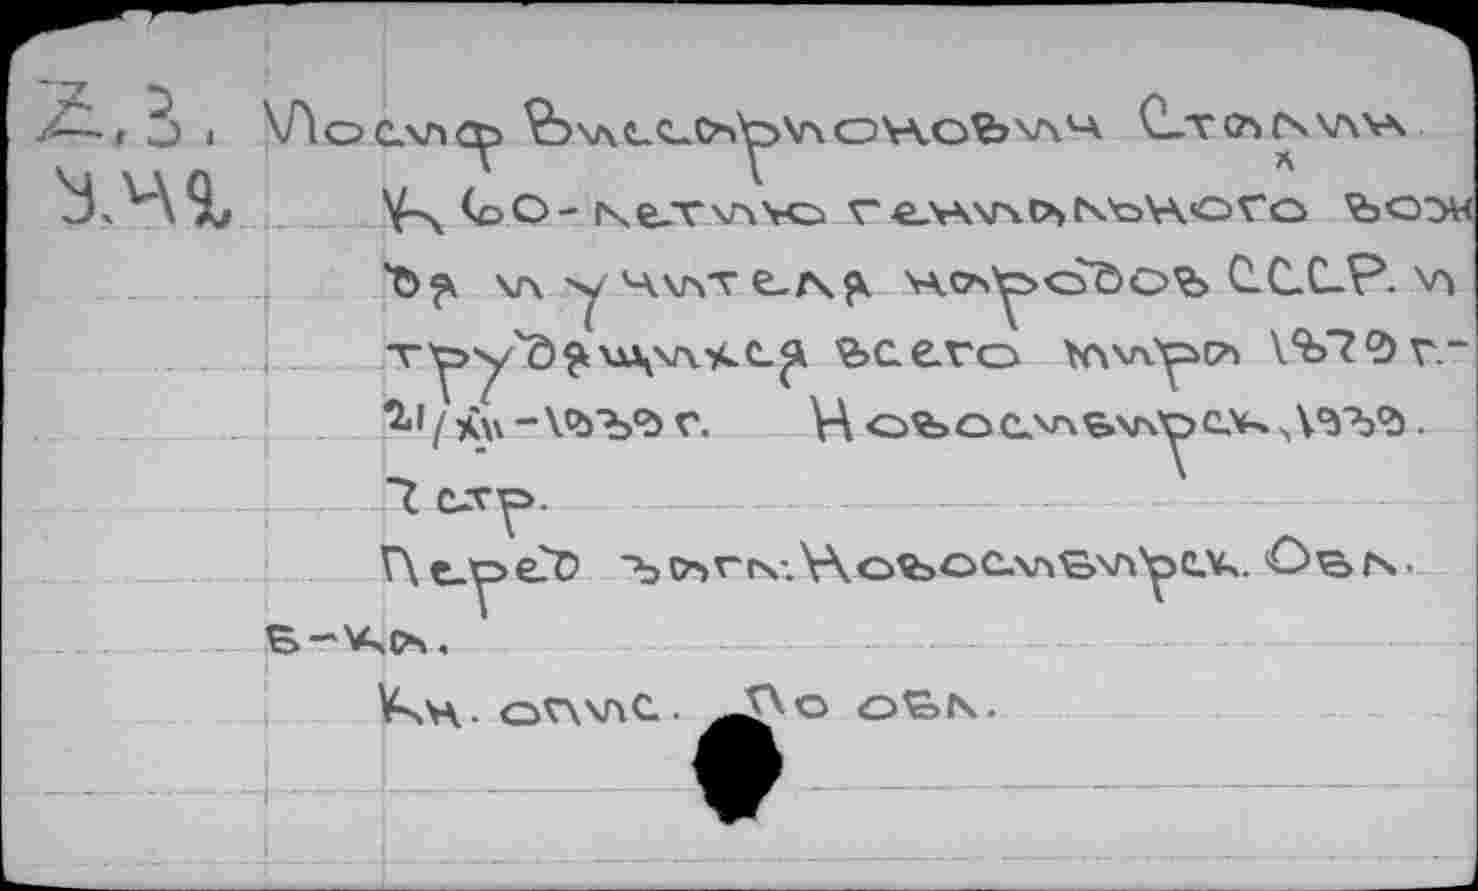 Z.3. Иосиф Виссарионович Сталин
З.Ч9, К 60-летию гениального вож
дя и учителя народов СССР и
трудящихся всего мира 1879 г.-
21/XII-1939 г. Новосибирск, 1939.
7 стр.
Перед загл: Новосибирск. Обл.
б-ка.
Кн. опис. По обл.